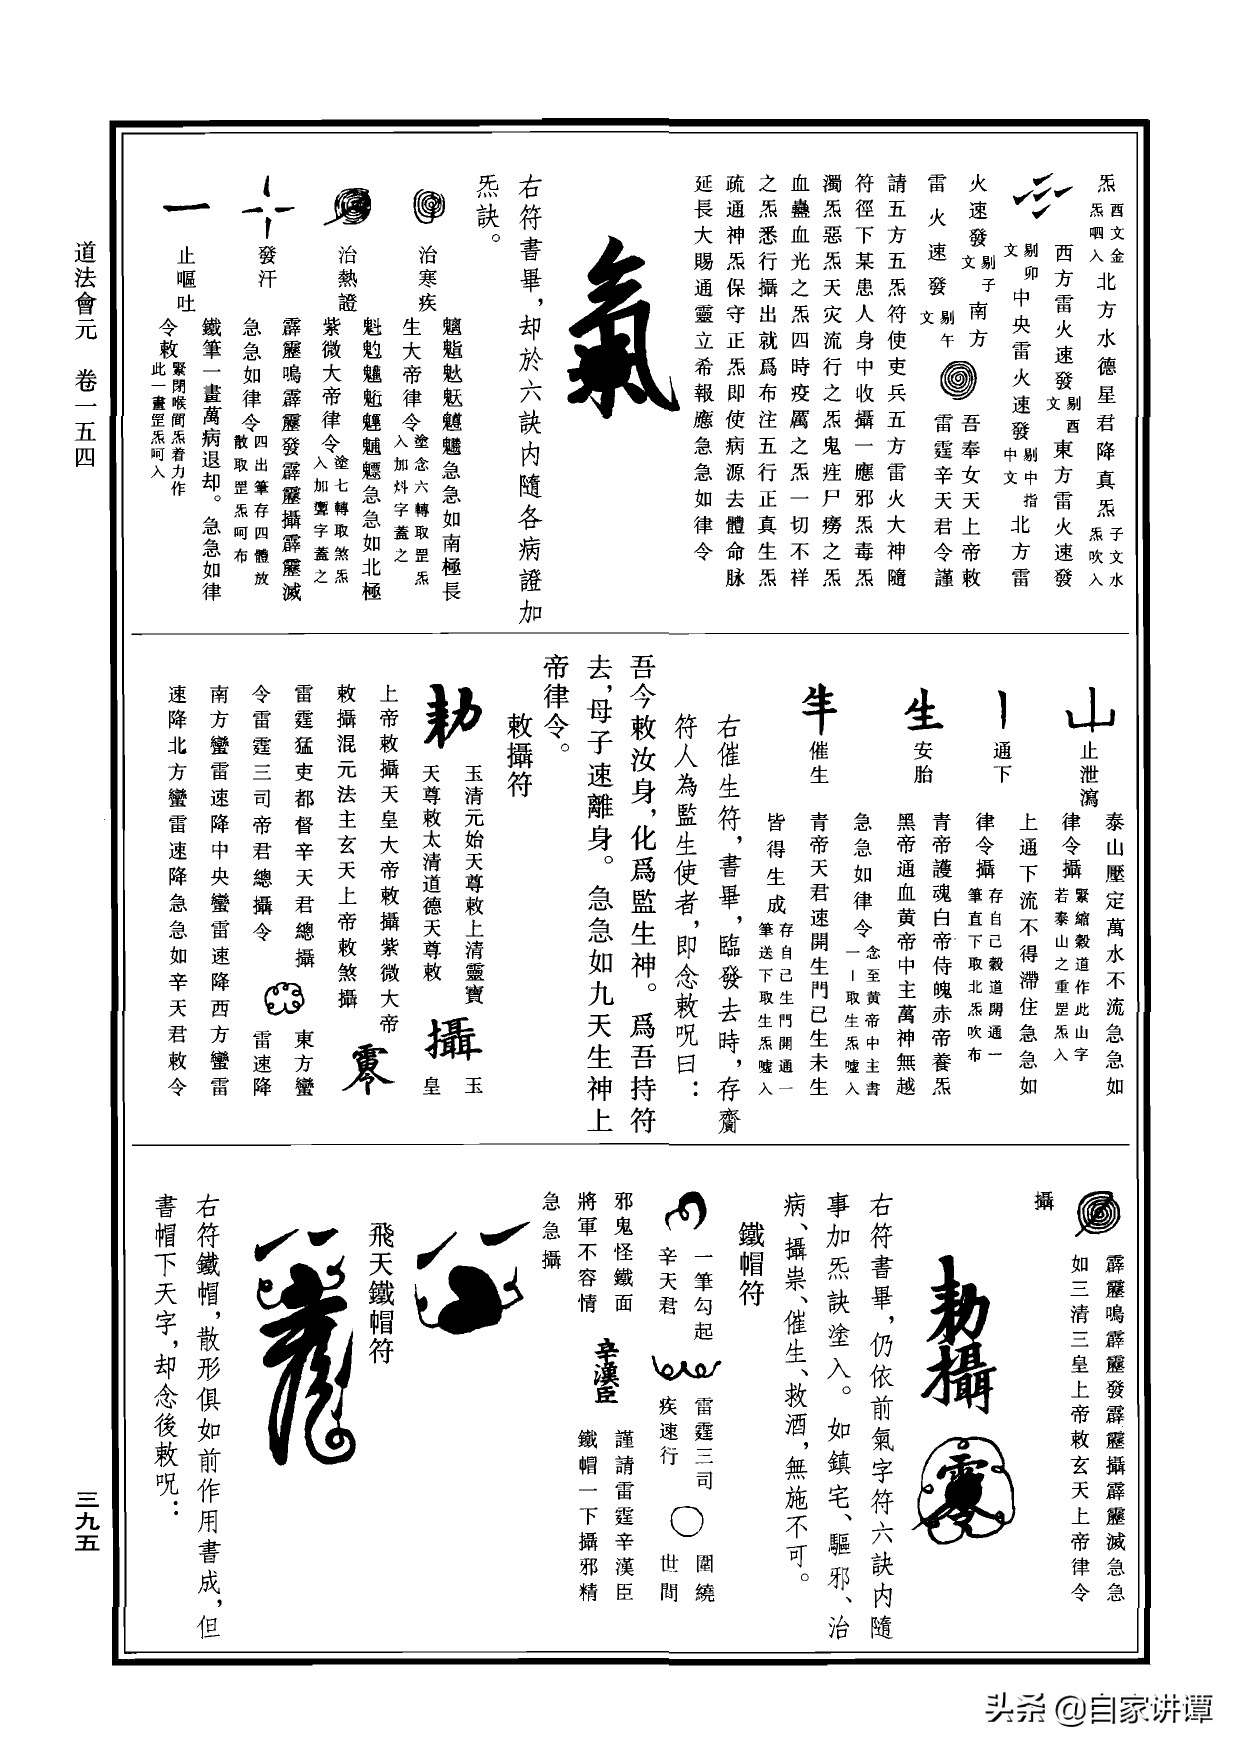 道法會元　卷一五四
炁酉文金炁呬入北方水德星君降真炁子文水炁吹入
西方雷火速發剔酉文東方雷火速發
剔卯文中央雷火速發剔中指中文北方雷
火速發剔子文南方
雷火速發剔午文
吾奉女天上帝敕
雷霆辛天君令謹
請五方五炁符使吏兵五方雷火大神隨
符徑下某患人身中收攝一應邪炁毒炁
濁炁惡炁天灾流行之炁鬼疰尸癆之炁
血蠱血光之炁四時疫厲之炁一切不祥
之炁悉行攝出就爲布注五行正真生炁
疏通神炁保守正炁即使病源去體命脉
延長大賜通靈立希報應急急如律令
氣
右符書畢，却於六訣内隨各病證加
炁訣。
治寒疾
急急如南極長
生大帝律令塗念六轉取罡炁入加炓字蓋之
治熱證
急急如北極
紫微大帝律令塗七轉取煞炁入加䨻字蓋之
發汗
霹靂鳴霹靂發霹靂攝霹靂滅
急急如律令四出筆存四體放散取罡炁呵布
一
止嘔吐
鐵筆一畫萬病退却。急急如律
令敕緊閉喉間炁着力作此一畫罡炁呵入
山
止泄瀉
泰山壓定萬水不流急急如
律令攝緊縮穀道作此山字若泰山之重罡炁入
丨
通下
上通下流不得滯住急急如
律令攝存自己穀道開通一筆直下取北炁吹布
生
安胎
青帝護魂白帝侍魄赤帝養炁
黑帝通血黄帝中主萬神無越
急急如律令念至黄帝中主書一丨取生炁噓入
催生
青帝天君速開生門已生未生
皆得生成存自己生門開通一筆送下取生炁噓入
右催生符，書畢，臨發去時，存齎
符人為監生使者，即念敕呪曰：
吾今敕汝身，化爲監生神。爲吾持符
去，母子速離身。急急如九天生神上
帝律令。
敕攝符
敕
玉清元始天尊敕上清靈寶
天尊敕太清道德天尊敕
攝
玉
皇
上帝敕攝天皇大帝敕攝紫微大帝
敕攝混元法主玄天上帝敕煞攝
雷霆猛吏都督辛天君總攝
令雷霆三司帝君總攝令
東方蠻
雷速降
南方蠻雷速降中央蠻雷速降西方蠻雷
速降北方蠻雷速降急急如辛天君敕令
霹靂鳴霹靂發霹靂攝霹靂滅急急
如三清三皇上帝敕玄天上帝律令
攝
敕攝
右符書畢，仍依前氣字符六訣内隨
事加炁訣塗入。如鎮宅、驅邪、治
病、攝祟、催生、救酒，無施不可。
鐵帽符
一筆勾起
辛天君
雷霆三司
疾速行
圍繞
世間
邪鬼怪鐵面
將軍不容情
辛漢臣
謹請雷霆辛漢臣
鐵帽一下攝邪精
急急攝
飛天鐵帽符
右符鐵帽，散形俱如前作用書成，但
書帽下天字，却念後敕呪：
三九五
头条 @自家讲谭